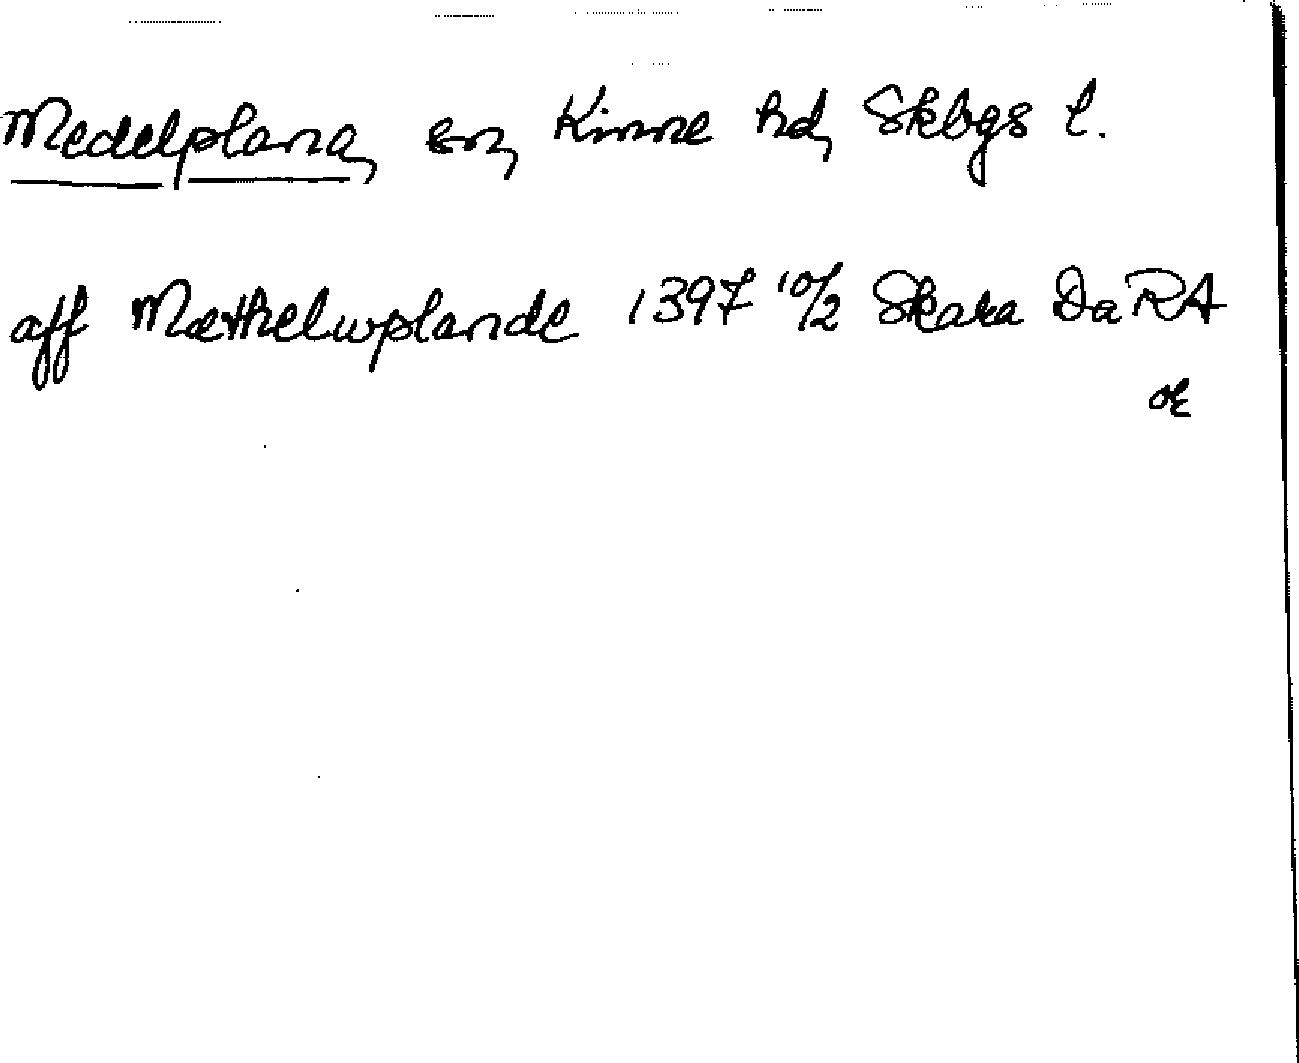 Medelplana, sn, Kinne hd, Skbgs l.
aff Mæthelwplande 1397 10/2 Skara Da RA
or